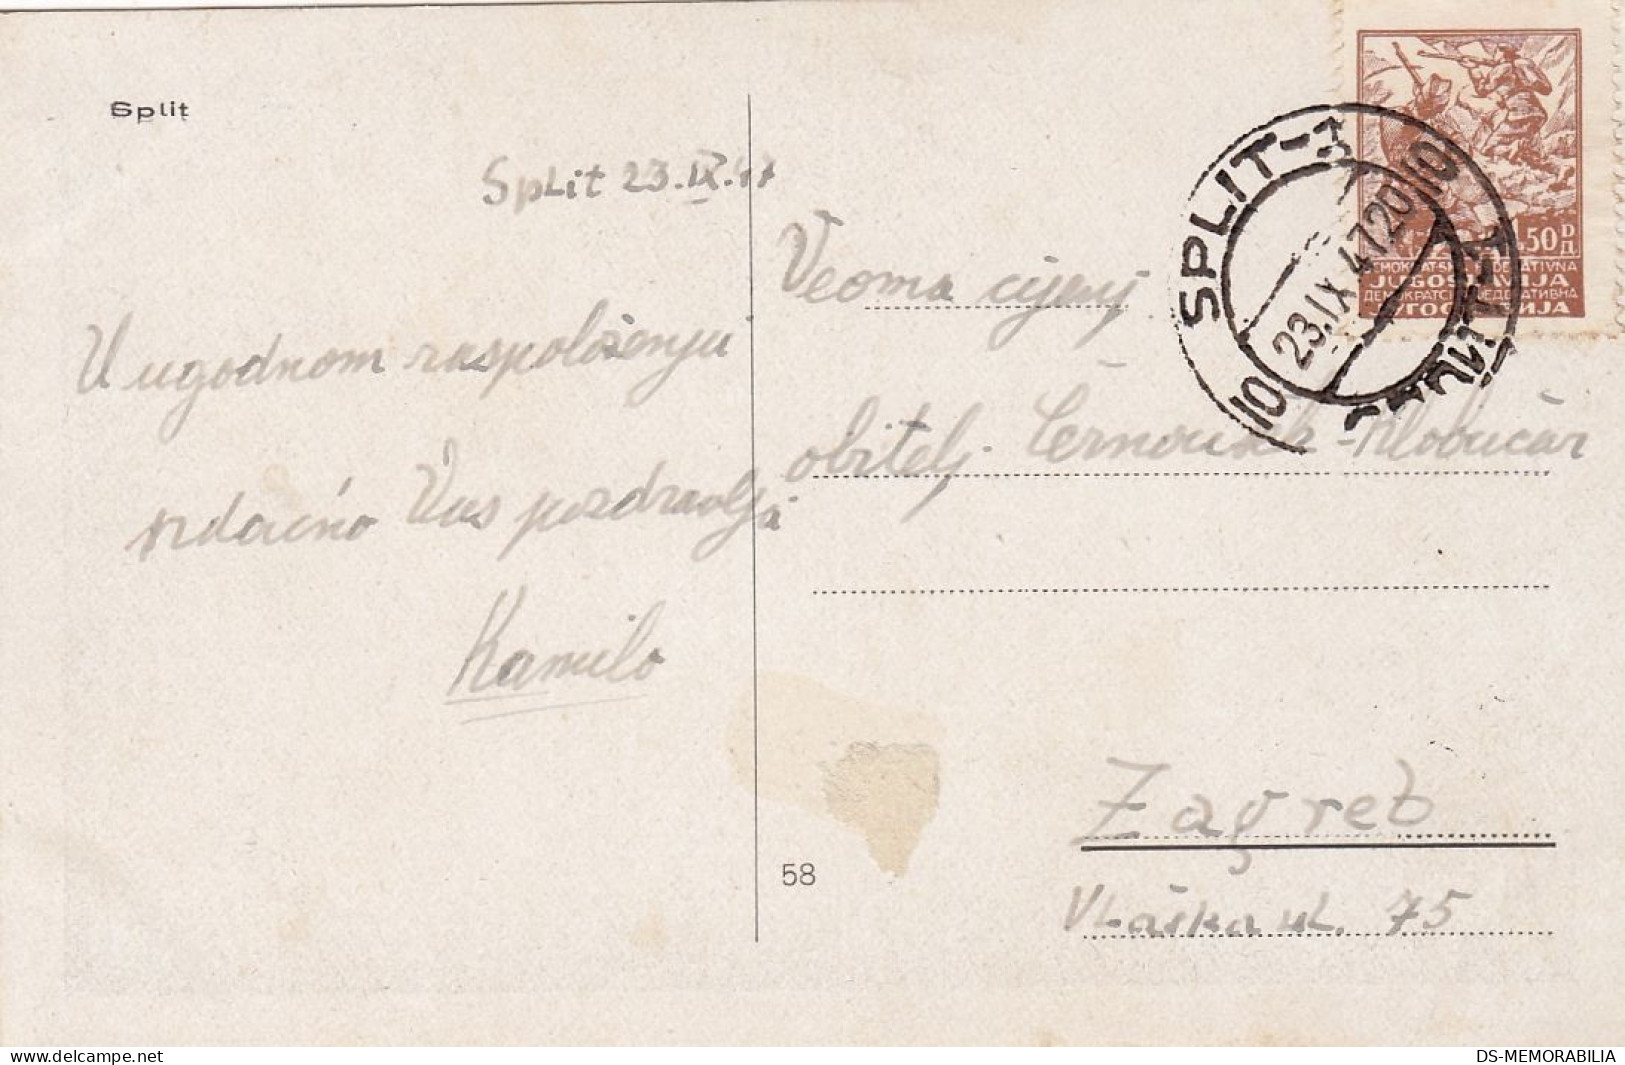 Split
Split 23.IX.47
U ugodnom raspoloženju
srdačno Vas pozdravlja
Kamilo
Veoma cijenj.
obitelj Černoušek-Klobučar
Zagreb
Vlaška ul. 75
58
SPLIT-3
10
23.IX.47 20
10
СПЛИТ-3
50 D
Д
JUGOSLAVIJA
delcampe.net
DS-MEMORABILIA